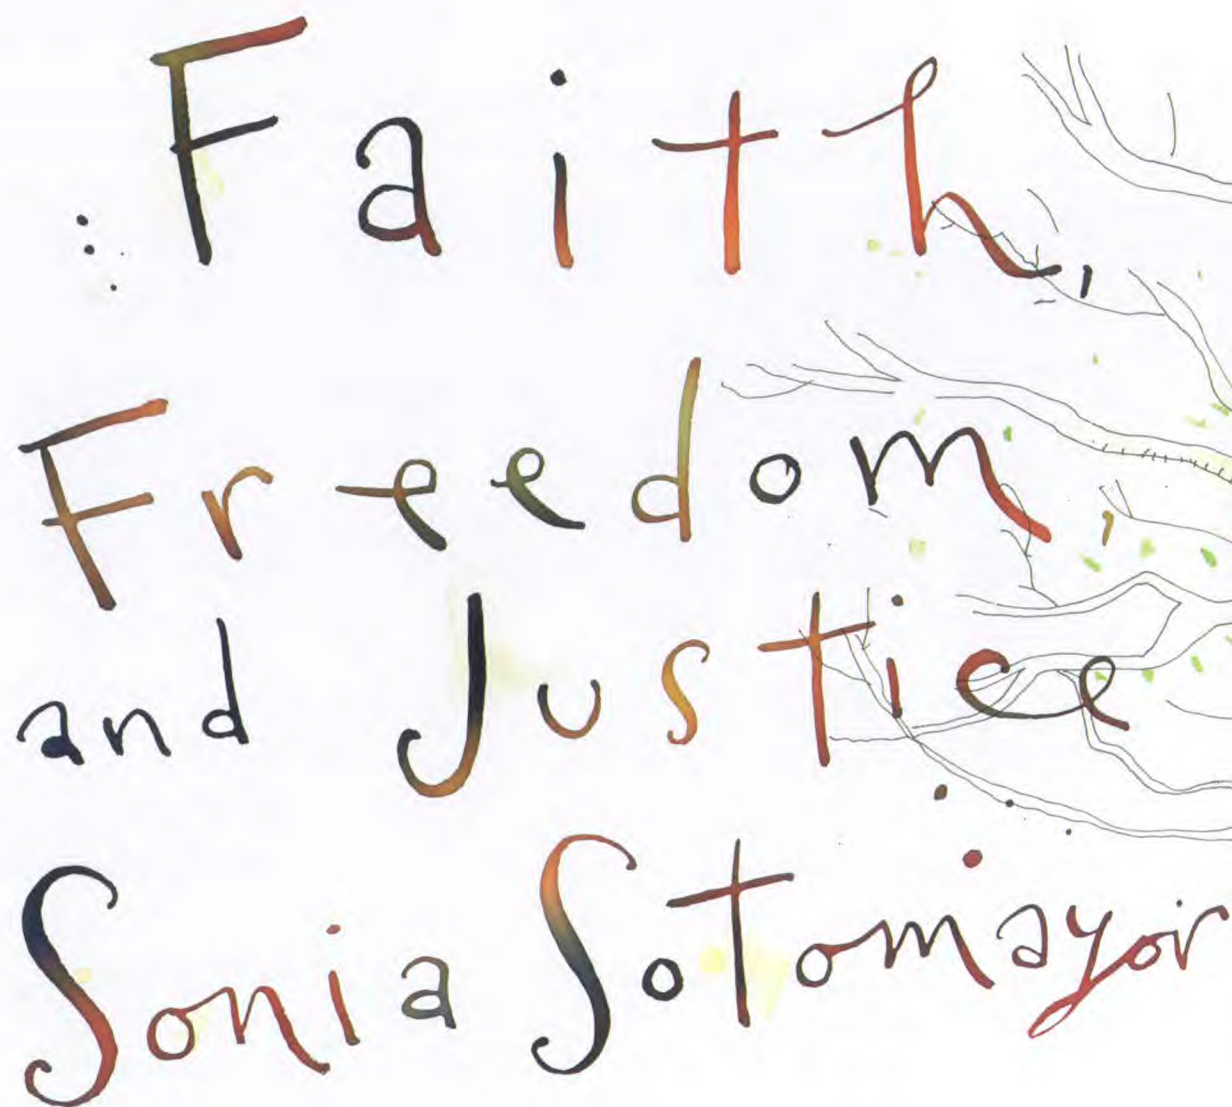 Faith,
Freedom,
and Justice
Sonia Sotomayor